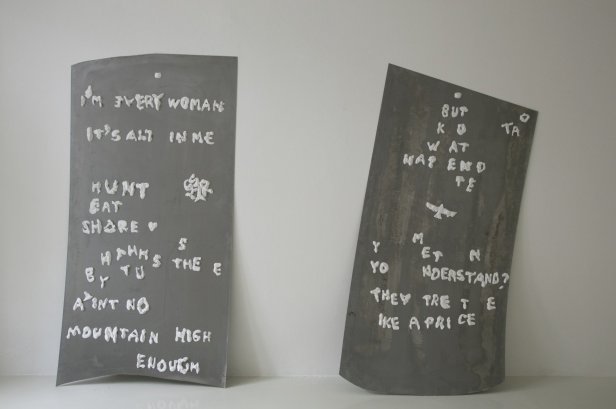 I'M EVERY WOMAN
IT'S ALL IN ME
HUNT
EAT
SHARE ♥
BY
A'INT NO
MOUNTAIN HIGH
ENOUGH
BUT
TA
K O
W AT
HAP END
TE
Y M N
YO NDERSTAND?
THEY TRE T E
IKE A PRICE